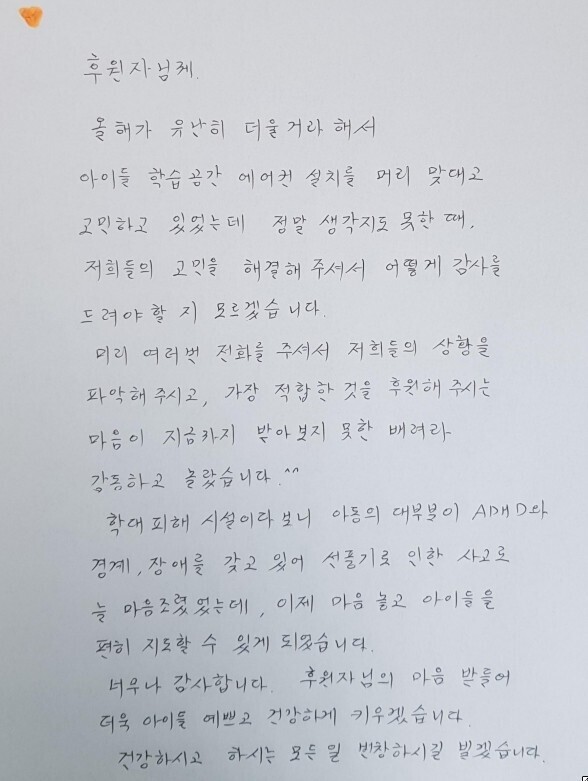 후원자님께.
올해가 유난히 더울거라 해서
아이들 학습공간 에어컨 설치를 머리 맞대고
고민하고 있었는데 정말 생각지도 못한 때,
저희들의 고민을 해결해 주셔서 어떻게 감사를
드려야 할 지 모르겠습니다.
미리 여러번 전화를 주셔서 저희들의 상황을
파악해 주시고, 가장 적합한 것을 후원해 주시는
마음이 지금까지 받아보지 못한 배려라
감동하고 놀랐습니다.^^
학대피해 시설이다보니 아동의 대부분이 ADHD와
경계, 장애를 갖고 있어 선풍기로 인한 사고로
늘 마음조렸었는데, 이제 마음 놓고 아이들을
편히 지도할 수 있게 되었습니다.
너무나 감사합니다. 후원자님의 마음 받들어
더욱 아이들 예쁘고 건강하게 키우겠습니다.
건강하시고 하시는 모든일 번창하시길 빌겠습니다.